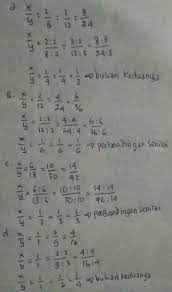 a. x/y = 2/8 = 3/12 = 8/24
x/y = 2:2/8:2 = 3:3/12:3 = 8:8/24:8
x/y = 1/4 = 1/4 = 1/3 → bukan keduanya
b. x/y = 2/12 = 4/24 = 6/36
x/y = 2:2/12:2 = 4:4/24:4 = 6:6/36:6
x/y = 1/6 = 1/6 = 1/6 → perbandingan senilai
c. x/y = 6/18 = 10/30 = 14/42
x/y = 6:6/18:6 = 10:10/30:10 = 14:14/42:14
x/y = 1/3 = 1/3 = 1/3 → perbandingan senilai
d. x/y = 1/1 = 3/9 = 4/16
x/y = 1/1 = 3:3/9:3 = 4:4/16:4
x/y = 1/1 = 1/3 = 1/4 → bukan keduanya